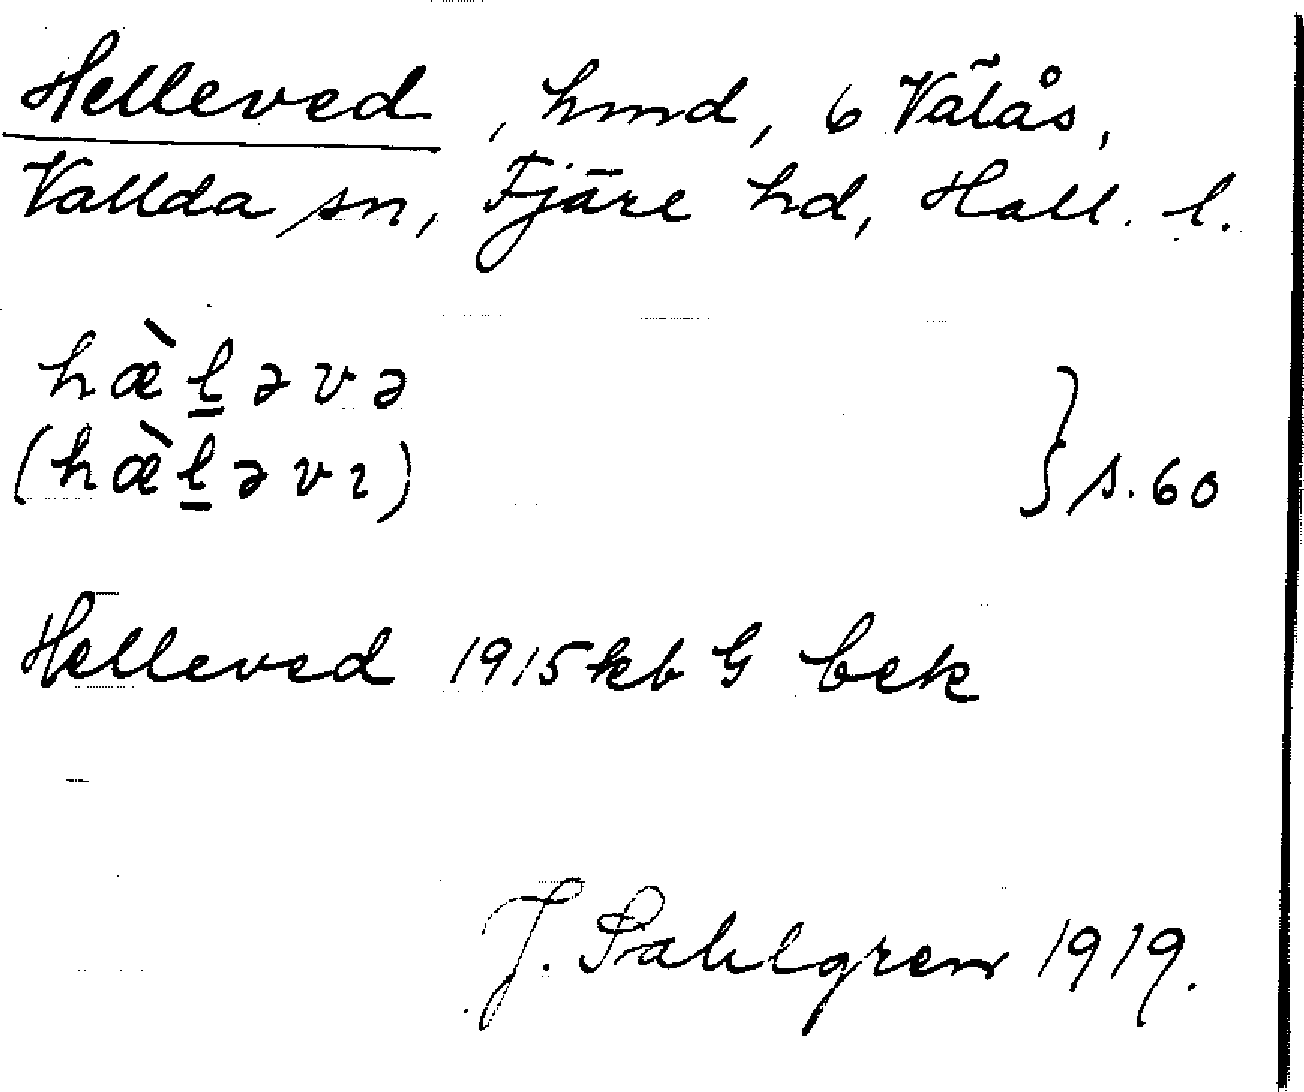 Helleved, hmd, 6 Välås,
Vallda sn, Fjäre hd, Hall. l.
hæ̀l̲əvə
(hæ̀l̲əvɪ) } s. 60
Helleved 1915 kb G bek
J. Sahlgren 1919.